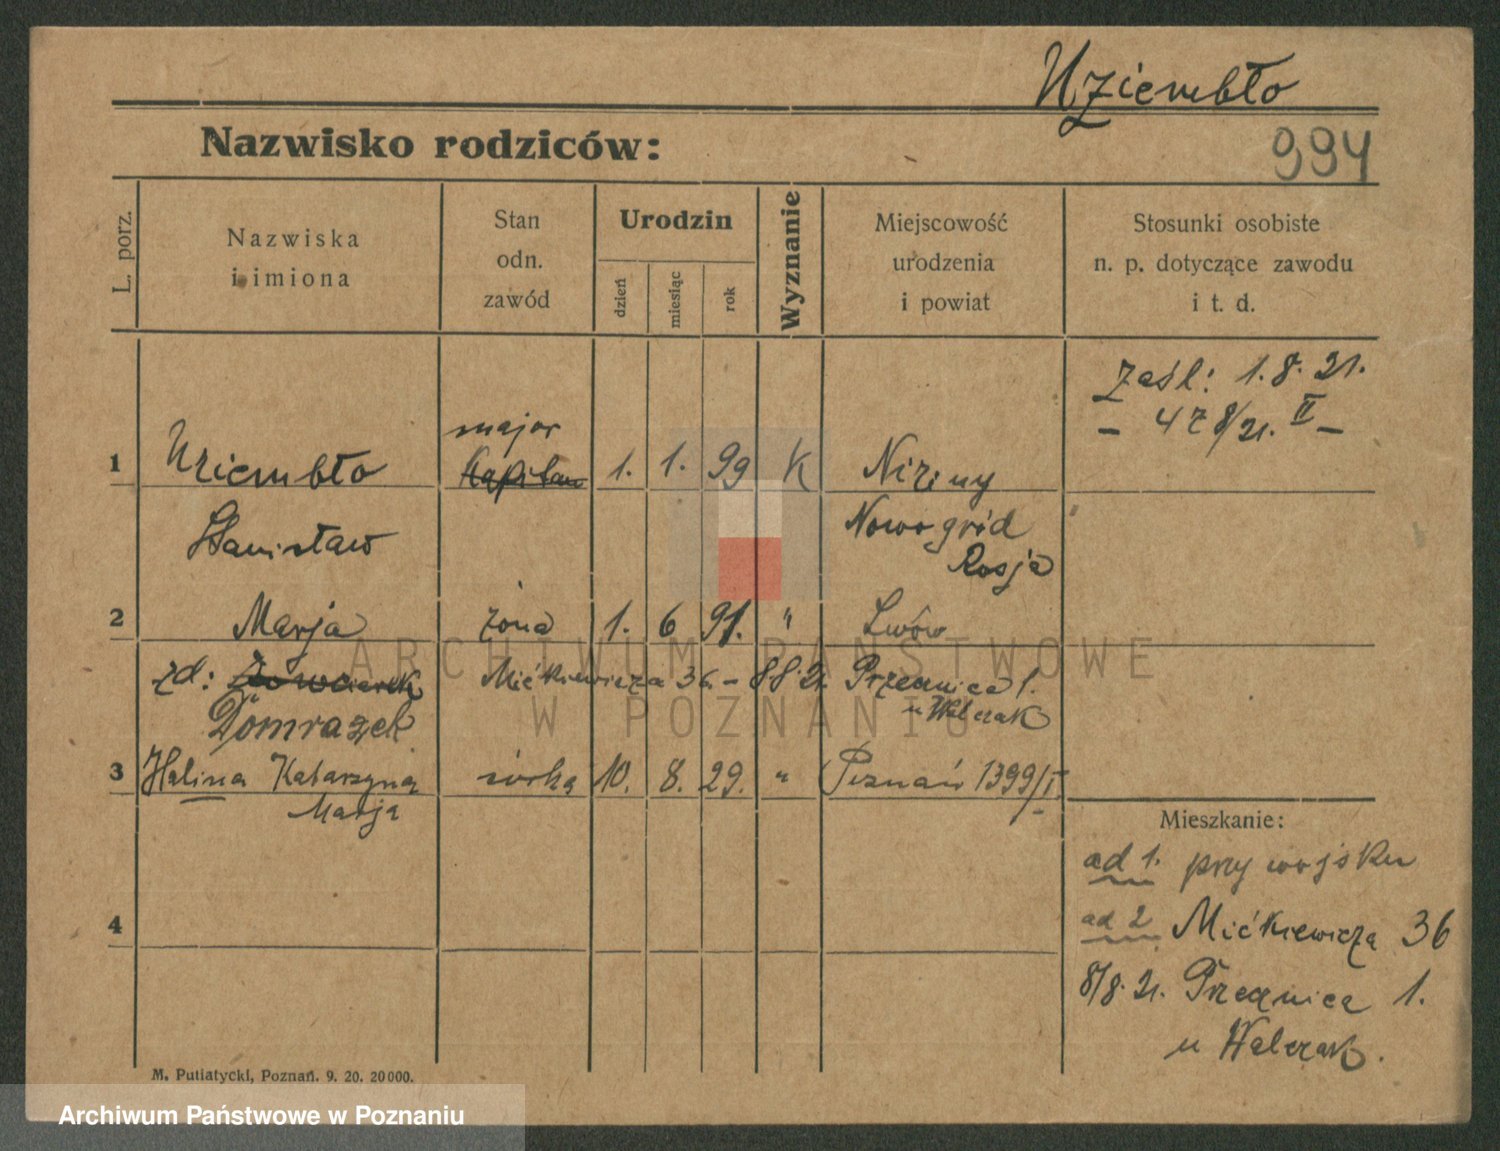 Uziembło
994
Nazwisko rodziców:
L. porz.
Nazwiska
i imiona
Stan
odn.
zawód
Urodzin
dzień
miesiąc
rok
Wyznanie
Miejscowość
urodzenia
i powiat
Stosunki osobiste
n. p. dotyczące zawodu
i t. d.
Zaśl: 1. 8. 21.
– 478/21. II –
major
1 Uziembło Kapitan 1. 1. 99 K Niziny
Stanisław Nowogród
Rosja
2 Marja żona 1. 6 91. " Lwów
zd: Mićkiewicza 36. – 8 8 21. Przecznica 1.
u Walczak
Domrazek
3 Halina Katarzyna córka 10. 8. 29. " Poznań 1399/I
Marja
4
Mieszkanie:
ad 1. przy wojsku
ad 2 Mićkiewicza 36
8/8. 21. Przecznica 1.
u Walczak.
M. Putiatycki, Poznań. 9. 20. 20000.
ARCHIWUM PAŃSTWOWE
W POZNANIU
Archiwum Państwowe w Poznaniu